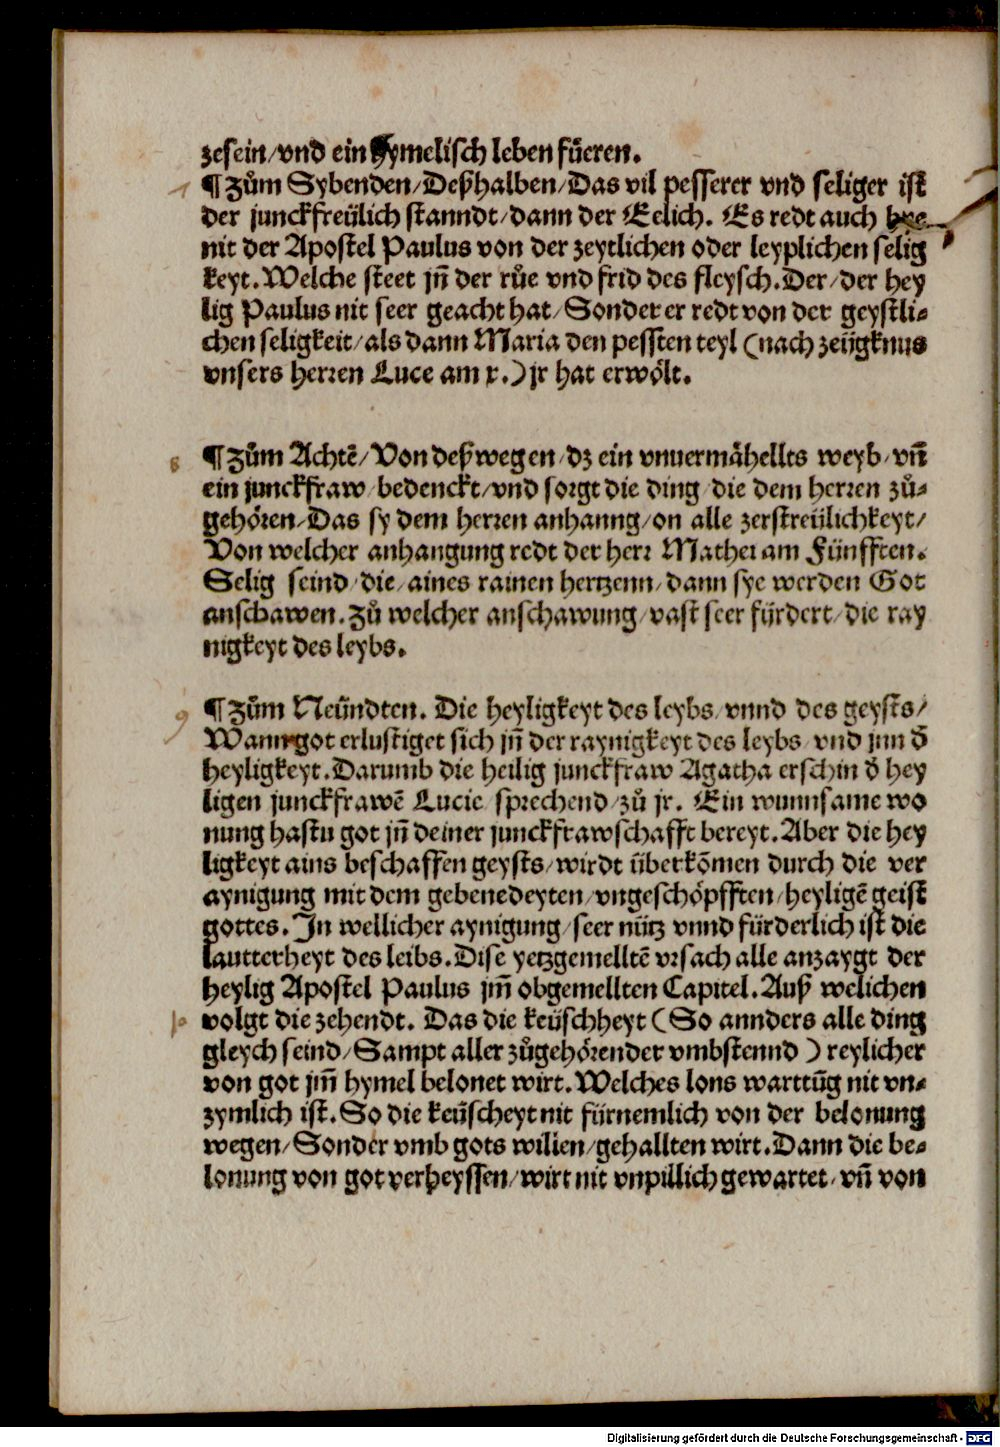 zesein/vnd ein hymelisch leben füeren.
¶ Zům Sybenden/Deßhalben/Das vil pesserer vnd seliger ist
der junckfreülich stanndt/dann der Eelich. Es redt auch hye
nit der Apostel Paulus von der zeytlichen oder leyplichen selig
keyt. Welche steet jn̄ der růe vnd frid des fleysch. Der/der hey
lig Paulus nit seer geacht hat/Sonder er redt von der geystli-
chen seligkeit/als dann Maria den pessten teyl (nach zeügknus
vnsers herren Luce am x.) jr hat erwölt.
8 ¶ Zům Achtē/Von deßwegen/dz ein vnuermähellts weyb/vn̄
ein junckfraw/bedenckt/vnd sorgt die ding/die dem herren zů-
gehören/Das sy dem herren anhanng/on alle zerstreülichkeyt/
Von welcher anhangung redt der herr Mathei am Fünfften.
Selig seind/die/aines rainen hertzenn/dann sye werden Got
anschawen. Zů welcher anschawung/vast seer fürdert/die ray
nigkeyt des leybs.
9 ¶ Zům Neündten. Die heyligkeyt des leybs/vnnd des geysts/
Wann got erlustiget sich jn̄ der raynigkeyt des leybs/vnd jnn d̄
heyligkeyt. Darumb die heilig junckfraw Agatha erschin d̄ hey
ligen junckfrawē Lucie sprechend/zů jr. Ein wunnsame wo
nung hastu got jn̄ deiner junckfrawschafft bereyt. Aber die hey
ligkeyt ains beschaffen geysts/wirdt überkōmen durch die ver
aynigung mit dem gebenedeyten/vngeschöpfften/heyligē geist
gottes. In wellicher aynigung/seer nütz vnnd fürderlich ist die
lautterheyt des leibs. Dise yetzgemelltē vrsach alle anzaygt der
heylig Apostel Paulus jm̄ obgemellten Capitel. Auß welichen
10 volgt die zehendt. Das die keüschheyt (So annders alle ding
gleych seind/Sampt aller zůgehörender vmbstennd) reylicher
von got jm̄ hymel belonet wirt. Welches lons warttūg nit vn-
zymlich ist. So die keüscheyt nit fürnemlich von der belonung
wegen/Sonder vmb gots willen/gehallten wirt. Dann die be-
lonung von got verheyssen/wirt nit vnpillich gewartet/vn̄ von
Digitalisierung gefördert durch die Deutsche Forschungsgemeinschaft - DFG